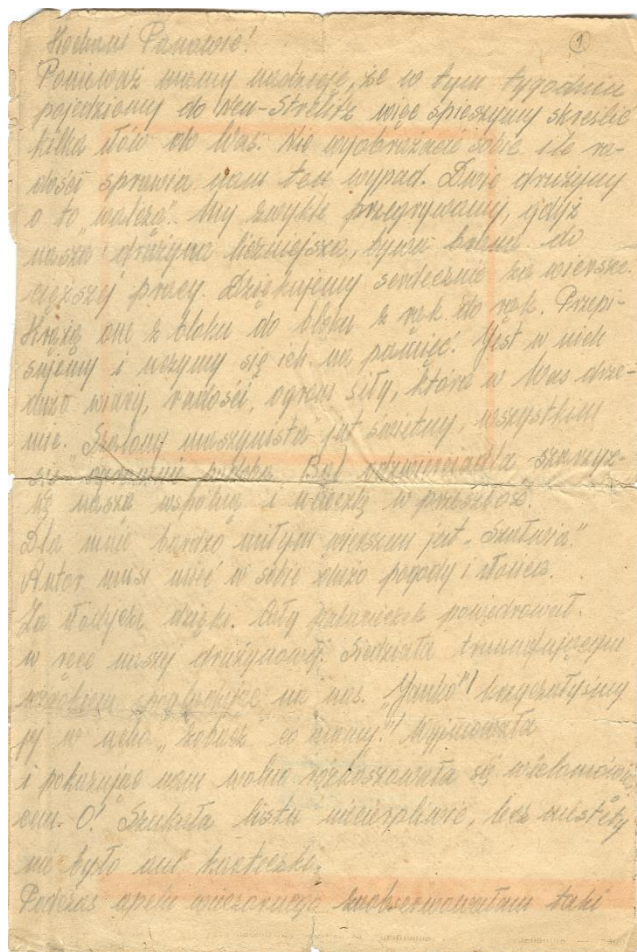 Kochani Panowie! 1
Ponieważ mamy nadzieję, że w tym tygodniu
pojedziemy do Neu-Strelitz więc spieszymy skreślić
kilka słów do Was. Nie wyobrażacie sobie ile ra-
dości sprawia nam ten wypad. Dwie drużyny
o to "walczą". My zwykle przegrywamy, gdyż
nasza drużyna liczniejsza, bywa brana do
cięższej pracy. Dziękujemy serdecznie za wiersze.
Krążą one z bloku do bloku z rąk do rąk. Przepi-
sujemy i uczymy się ich na pamięć. Jest w nich
dużo wiary, radości, ogrom siły, która w Was drze-
mie. "Szalony maszynista" jest świetny, wszystkim
się ogromnie podoba. Bo odzwierciedla
naszą wspólną i w przeszłość.
Dla mnie bardzo miłym wierszem jest "Szałwia."
Autor musi mieć w sobie dużo pogody i słońca.
Za słodycze dzięki. Cały powędrował
w ręce naszej drużynowej. Siedziała triumfującym
wzrokiem spoglądając na nas. "Janko"!
jej w "zobacz co mamy!" Wyjmowała
i pokazując nam wolno rozkoszowała się
O! Szukała listu niecierpliwie, lecz niestety
nie było ani karteczki.
Podczas apelu wieczornego zaobserwowałam taki